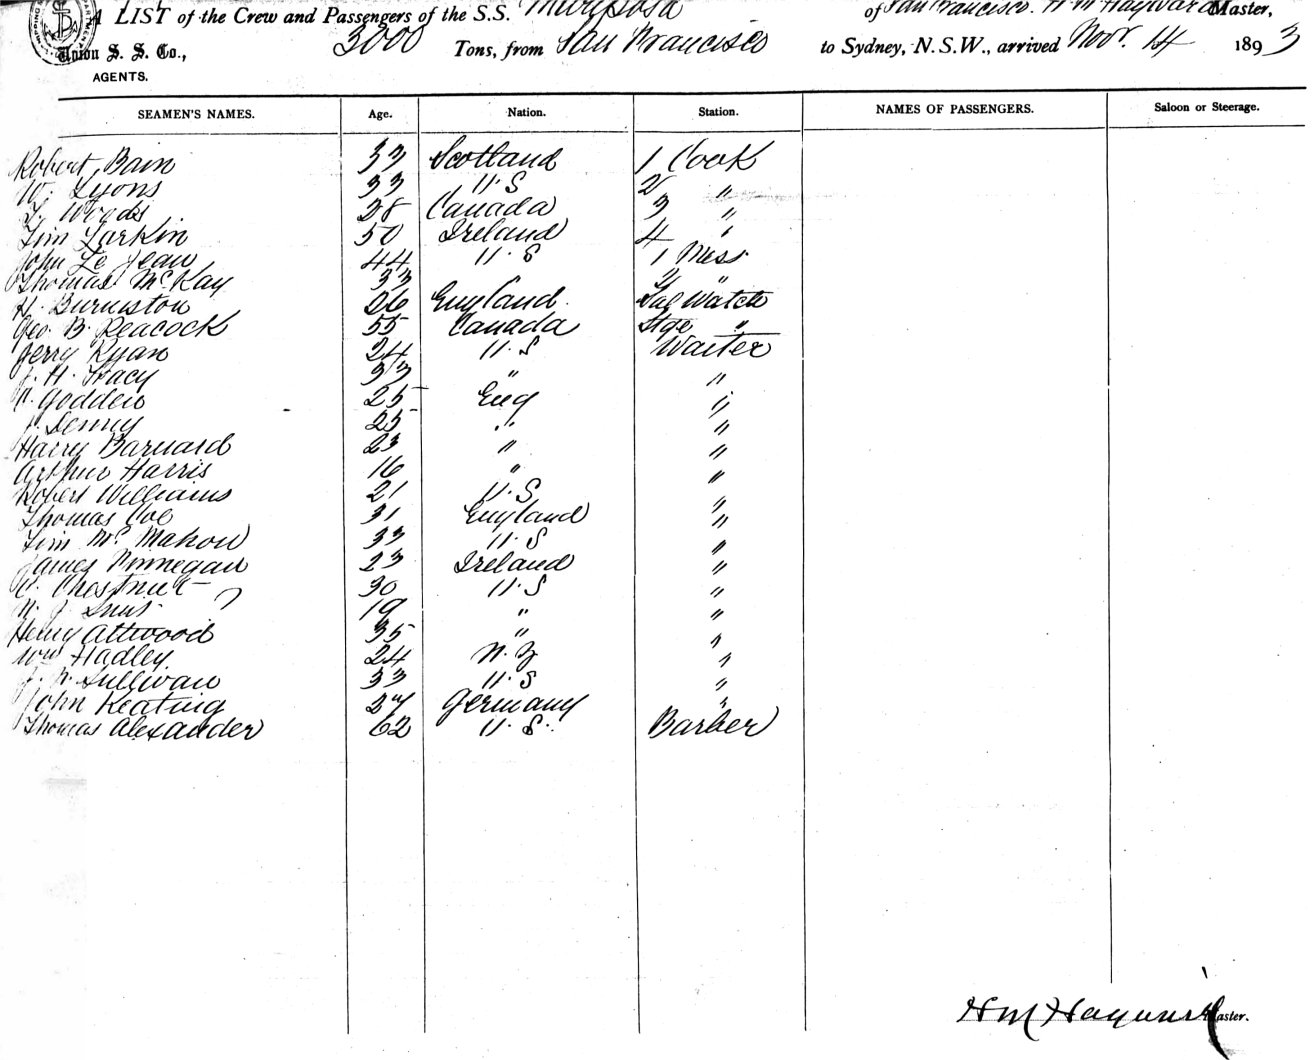 A LIST of the Crew and Passengers of the S.S. Mariposa of San Francisco. H M Hayward Master,
Union S. S. Co., 3000 Tons, from San Francisco to Sydney, N.S.W., arrived Novr. 14 1893
AGENTS.
SEAMEN'S NAMES. Age. Nation. Station. NAMES OF PASSENGERS. Saloon or Steerage.
Robert Bain 33 Scotland 1 Cook
W. Lyons 33 U.S 2 "
T. Woods 28 Canada 3 "
Tim Larkin 50 Ireland 4 "
John Le Jean 44 U.S 1 Mess
Thomas McKay 33 2 "
H. Burniston 26 England Sal Watch
Geo. B. Peacock 55 Canada Stge "
Jerry Ryan 24 U.S Waiter
J. H. Stacy 33 " "
Godden 25 Eng "
J. Denny 25 " "
Harry Barnard 23 " "
Arthur Harris 16 " "
Robert Williams 21 U.S "
Thomas Coe 31 England "
Tim McMahon 33 U.S "
James Finnegan 23 Ireland "
Chestnut 30 U.S "
J 19 " "
Henry Attwood 35 " "
Wm Hadley 24 N.Z "
J. Sullivan 33 U.S "
John Keating 27 Germany "
Thomas Alexander 62 U.S. Barber
H M Hayward Master.